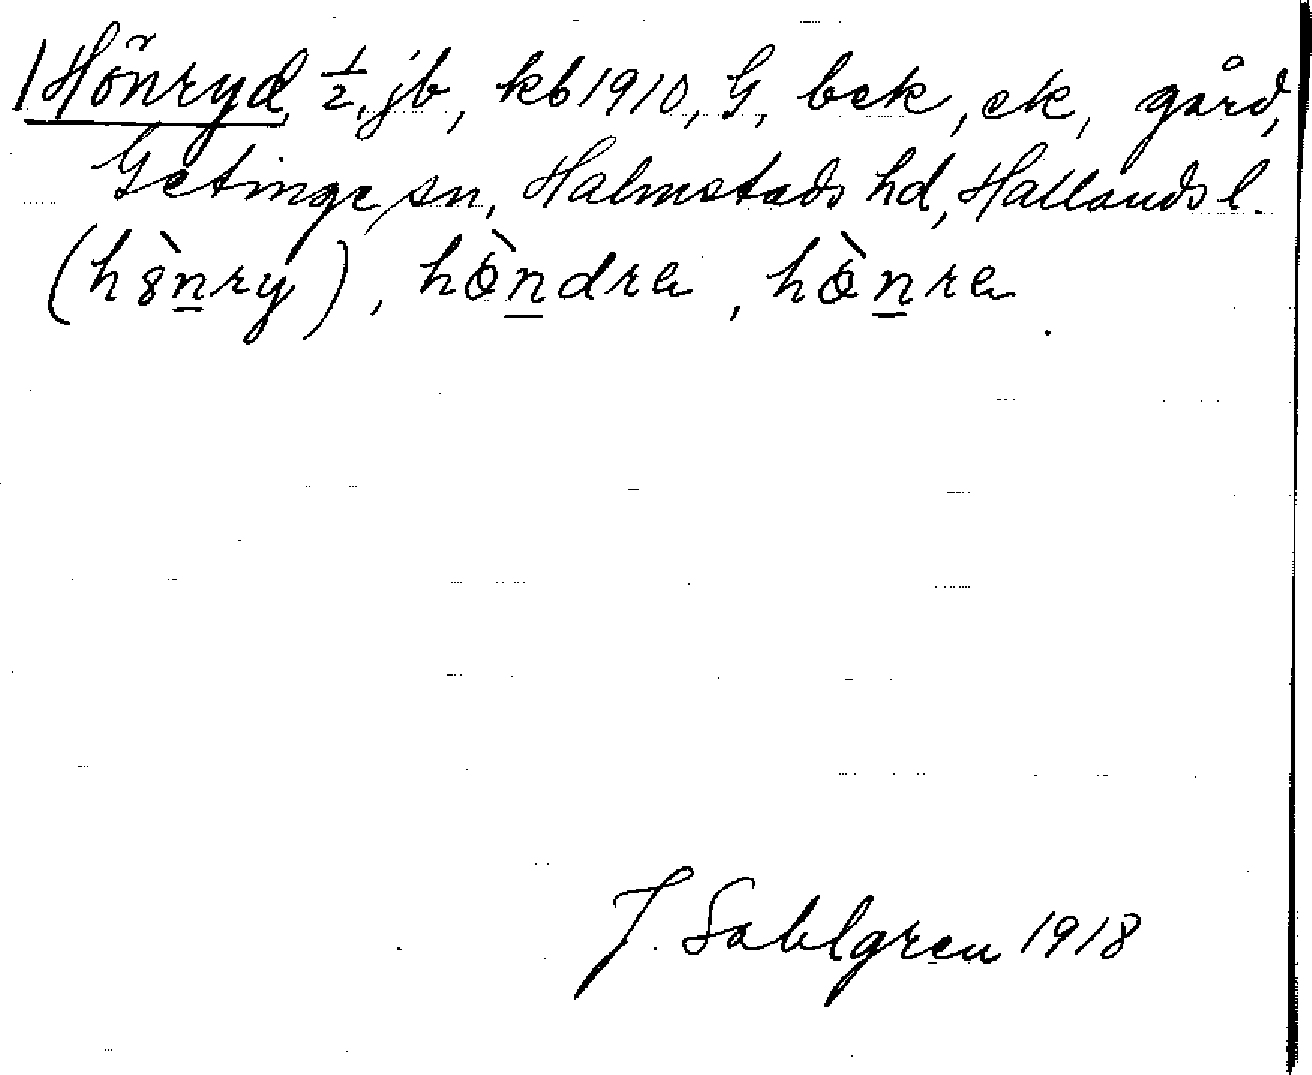 1 Hönryd ½, jb, kb 1910, G, bek, ek, gård,
Getinge sn, Halmstads hd, Hallands l.
(hȣ̀n̲ry), hòn̲dra, hòn̲ra.
J. Sahlgren 1918